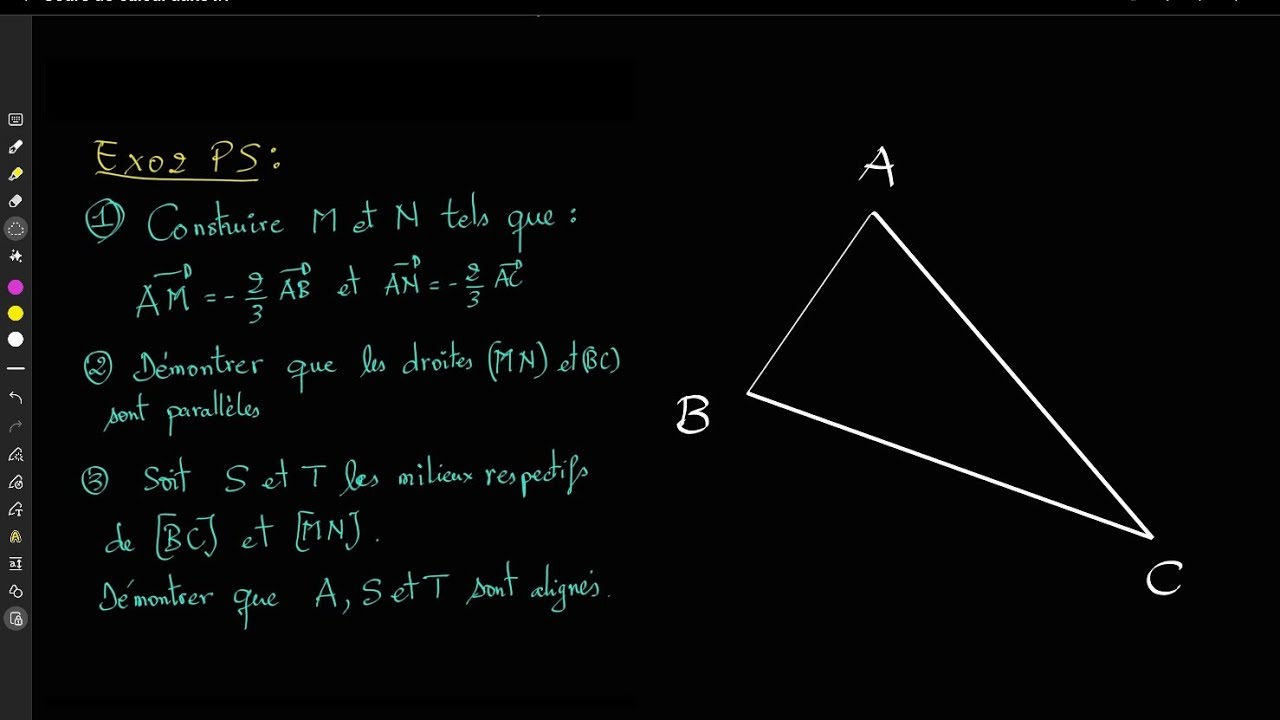 Exo2 PS:
① Construire M et N tels que :
AM = - 2/3 AB et AN = - 2/3 AC
② Démontrer que les droites (MN) et (BC)
sont parallèles
③ Soit S et T les milieux respectifs
de [BC] et [MN].
Démontrer que A, S et T sont alignés.
A
B
C